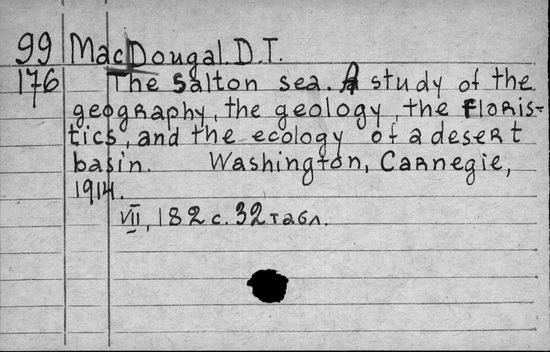 99 MacDougal. D.T.
176 The Salton sea. A study of the
geography, the geology, the floris-
tics, and the ecology of a desert
basin. Washington, Carnegie,
1914.
VII, 182 с. 32 табл.